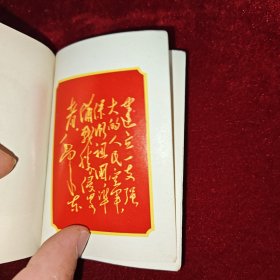 建立一支强
大的人民空军，
保卫祖国，准
备战胜侵略
者。毛泽东